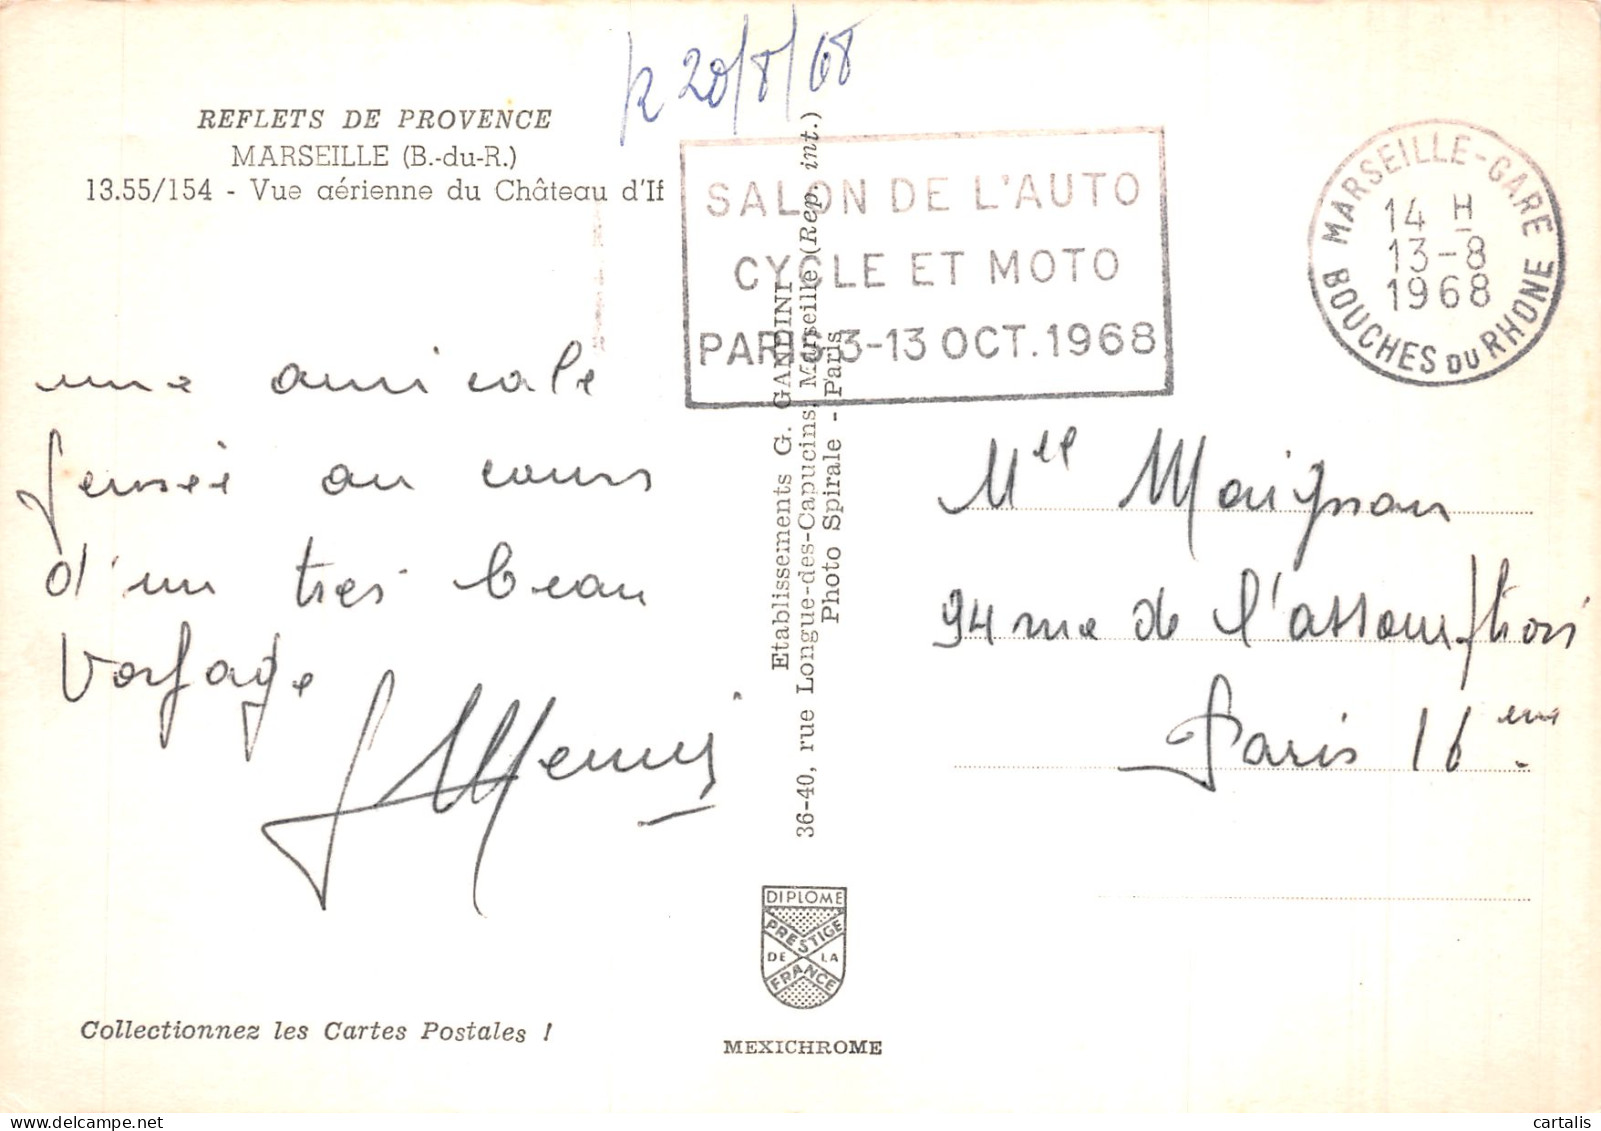 R 20/8/68
REFLETS DE PROVENCE
MARSEILLE (B.-du-R.)
13.55/154 - Vue aérienne du Château d'If
une amicale
pensée au cours
d'un très beau
voyage
SALON DE L'AUTO
CYCLE ET MOTO
PARIS 3-13 OCT. 1968
MARSEILLE-GARE
14 H
13-8
1968
BOUCHES DU RHONE
Etablissements G. GANDINI
36-40, rue Longue-des-Capucins, Marseille (Rep. int.)
Photo Spirale - Paris
Mlle Maignan
94 rue de l'assomption
Paris 16 eme
DIPLOME
PRESTIGE
DE LA
FRANCE
Collectionnez les Cartes Postales !
MEXICHROME
cartalis